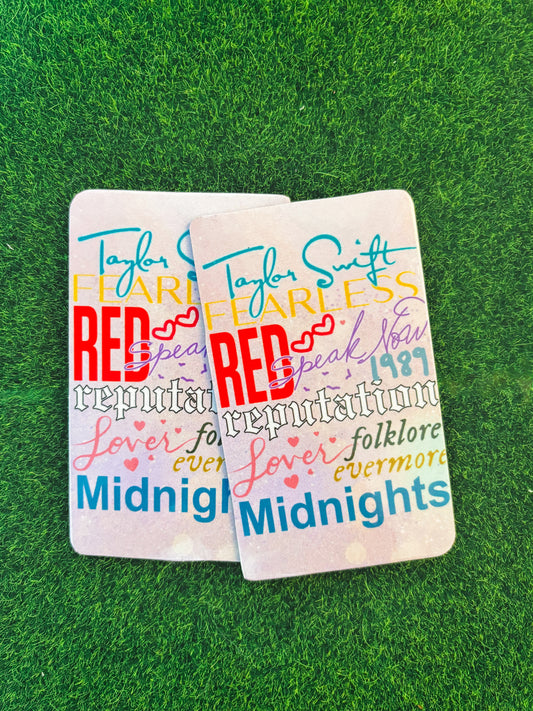 Taylor S
FEARL
RED
Speak
reputat
Lover fol
everm
Midnigh
Taylor Swift
FEARLESS
RED
Speak Now
1989
reputation
Lover folklore
evermore
Midnights